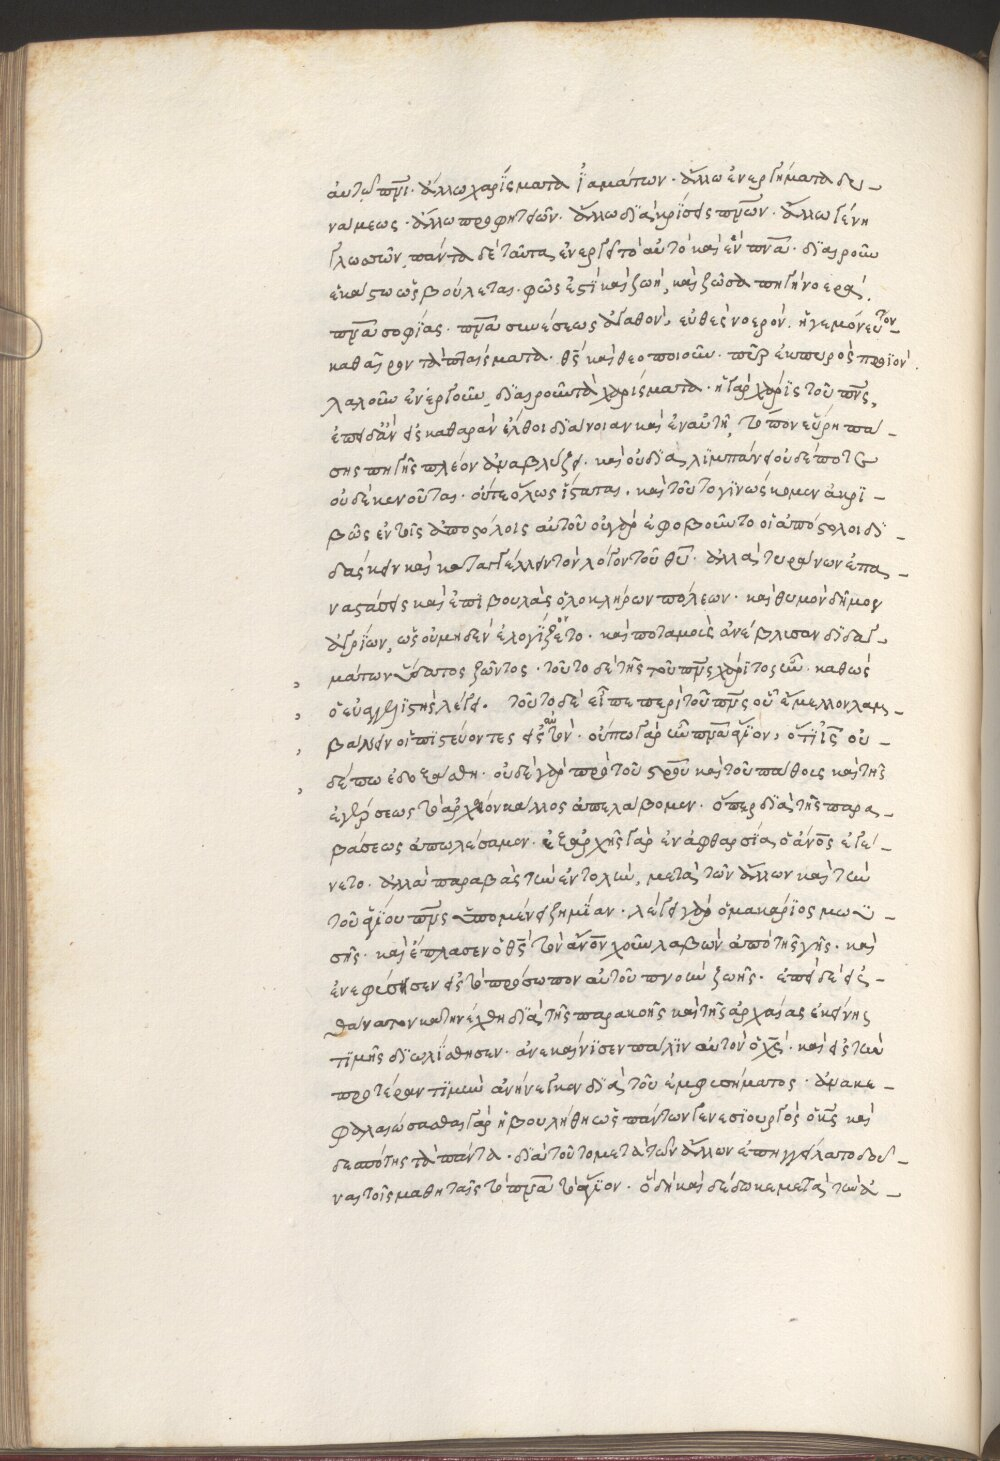 αὐτῶ πνι· ἄλλω χαρίσματα ἰαμάτων· ἄλλω ἐνεργήματα δυ-
νάμεως· ἄλλω προφητεῶν· ἄλλω διακρίσεις πνων· ἄλλω γένη
γλωσσῶν, πάντα δὲ ταῦτα, ἐνεργεῖ τὸ αὐτὸ καὶ ἓν πνα· διαιροῦν
ἑκάστω ὡς βούλεται· φῶς ἐστὶ καὶ ζωή, καὶ ζῶσα πηγὴ νοερά.
πνα σοφίας· πνα συνέσεως ἀγαθόν, εὐθὲς νοερόν. ἡγεμόνευτον
καθαῖρον τὰ πταίσματα· θς καὶ θεοποιοῦν· πῦρ ἐκ πυρὸς προϊόν.
λαλοῦν ἐνεργοῦν, διαιροῦν τὰ χαρίσματα· ἡ γὰρ χάρις τοῦ πνς,
ἐπειδὰν εἰς καθαρὰν ἔλθοι διάνοιαν καὶ ἐν αὐτῆ, τόπον εὕρη πά-
σης πηγῆς πλέον ἀναβλύζει· καὶ οὐ διαλιμπάνει οὐδέποτε
οὐδὲ κενοῦται· οὔτε ὅλως ἵσταται. καὶ τοῦτο γινώσκομεν ἀκρι-
βῶς ἐν τοῖς ἀποστόλοις αὐτοῦ οὐ γὰρ ἐφοβοῦντο οἱ ἀπόστολοι δι-
δάσκειν καὶ καταγγέλλειν τὸν λόγον τοῦ θυ· ἀλλὰ τυράννων ἐπα-
ναστάσεις καὶ ἐπιβουλὰς ὁλοκλήρων πόλεων· καὶ θυμὸν δήμων
ἀγρίων, ὡς οὐ μηδὲν ἐλογίζοντο· καὶ ποταμοὺς ἀνέβλισαν διδαγ-
μάτων ὕδατος ζῶντος· τοῦτο δὲ τῆς τοῦ πνς χάριτος ἦν· καθὼς
ὁ εὐαγγελιστὴς λέγει. τοῦτο δὲ εἶπε περὶ τοῦ πνς οὗ ἔμελλον λαμ-
βάνειν οἱ πιστεύοντες εἰς αὐτόν· οὔπω γὰρ ἦν πνα ἅγιον, ὅτι ις οὐ-
δέπω ἐδοξάσθη· οὐδὲ γὰρ πρὸ τοῦ στρου καὶ τοῦ πάθους καὶ τῆς
ἐγέρσεως τὸ ἀρχαῖον κάλλος ἀπελάβομεν· ὅπερ διὰ τῆς παρα-
βάσεως ἀπωλέσαμεν· ἐξ ἀρχῆς γὰρ ἐν ἀφθαρσία, ὁ ἄνος ἐγέ-
νετο· ἀλλὰ παραβὰς τὴν ἐντολὴν, μετὰ τῶν ἄλλων καὶ τὴν
τοῦ ἁγίου πνς ὑπομένει ζημίαν· λέγει γὰρ ὁ μακάριος μωϋ-
σῆς· καὶ ἔπλασεν ὁ θς τὸν ἄνον χοῦν λαβὼν ἀπὸ τῆς γῆς· καὶ
ἐνεφύσησεν εἰς τὸ πρόσωπον αὐτοῦ πνοὴν ζωῆς· ἐπεὶ δὲ εἰς
θάνατον κατηνέχθη διὰ τῆς παρακοῆς καὶ τῆς ἀρχαίας ἐκείνης
τιμῆς διωλίσθησεν· ἀνεκαίνισεν πάλιν αὐτὸν ὁ χς· καὶ εἰς τὴν
προτέραν τιμὴν ἀνήνεγκεν διὰ τοῦ ἐμφυσήματος· ἀνακε-
φαλαιώσασθαι γὰρ ἠβουλήθη ὡς πάντων γενεσιουργὸς ὁ κς καὶ
δεσπότης τὰ πάντα· διὰ τοῦτο μετὰ τῶν ἄλλων ἐπηγγείλατο δοῦ-
ναι τοῖς μαθηταῖς τὸ πνα τὸ ἅγιον· ὃ δὴ καὶ δέδωκε μετὰ τὴν ἀ-